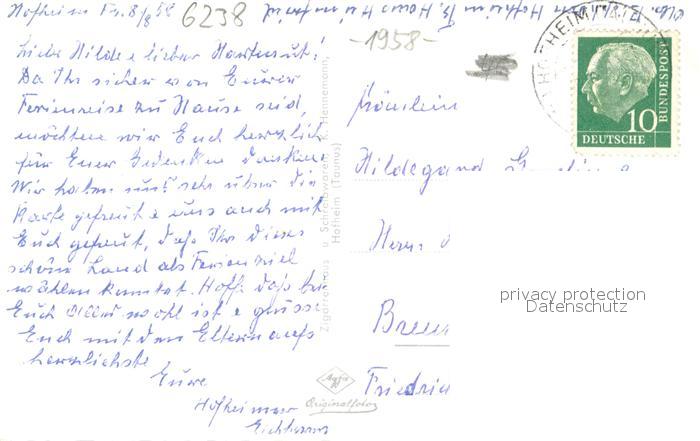 Hofheim Fr. 8/8 58
6238
-1958-
Liebe Hilde u lieber Hartmut!
Da Ihr sicher von Eurer
Ferienreise zu Hause seid,
möchten wir Euch herzlich
für Euer Gedenken danken.
Wir haben uns sehr über die
Karte gefreut u uns auch mit
Euch gefreut, daß Ihr dieses
schöne Land als Ferienziel
wählen konntet. Hoffe daß bei
Euch alles wohl ist u grüsse
Euch mit den Eltern aufs
herzlichste
Eure
Hofheimer
Zigarrenhaus u. Schreibwaren K. Hennemann,
Hofheim (Taunus)
Agfa
Originalfoto
Fräulein
Hildegard
Herrn
Friedric
HOFHEIM (TAUNUS)
10
DEUTSCHE
BUNDESPOST
privacy protection
Datenschutz